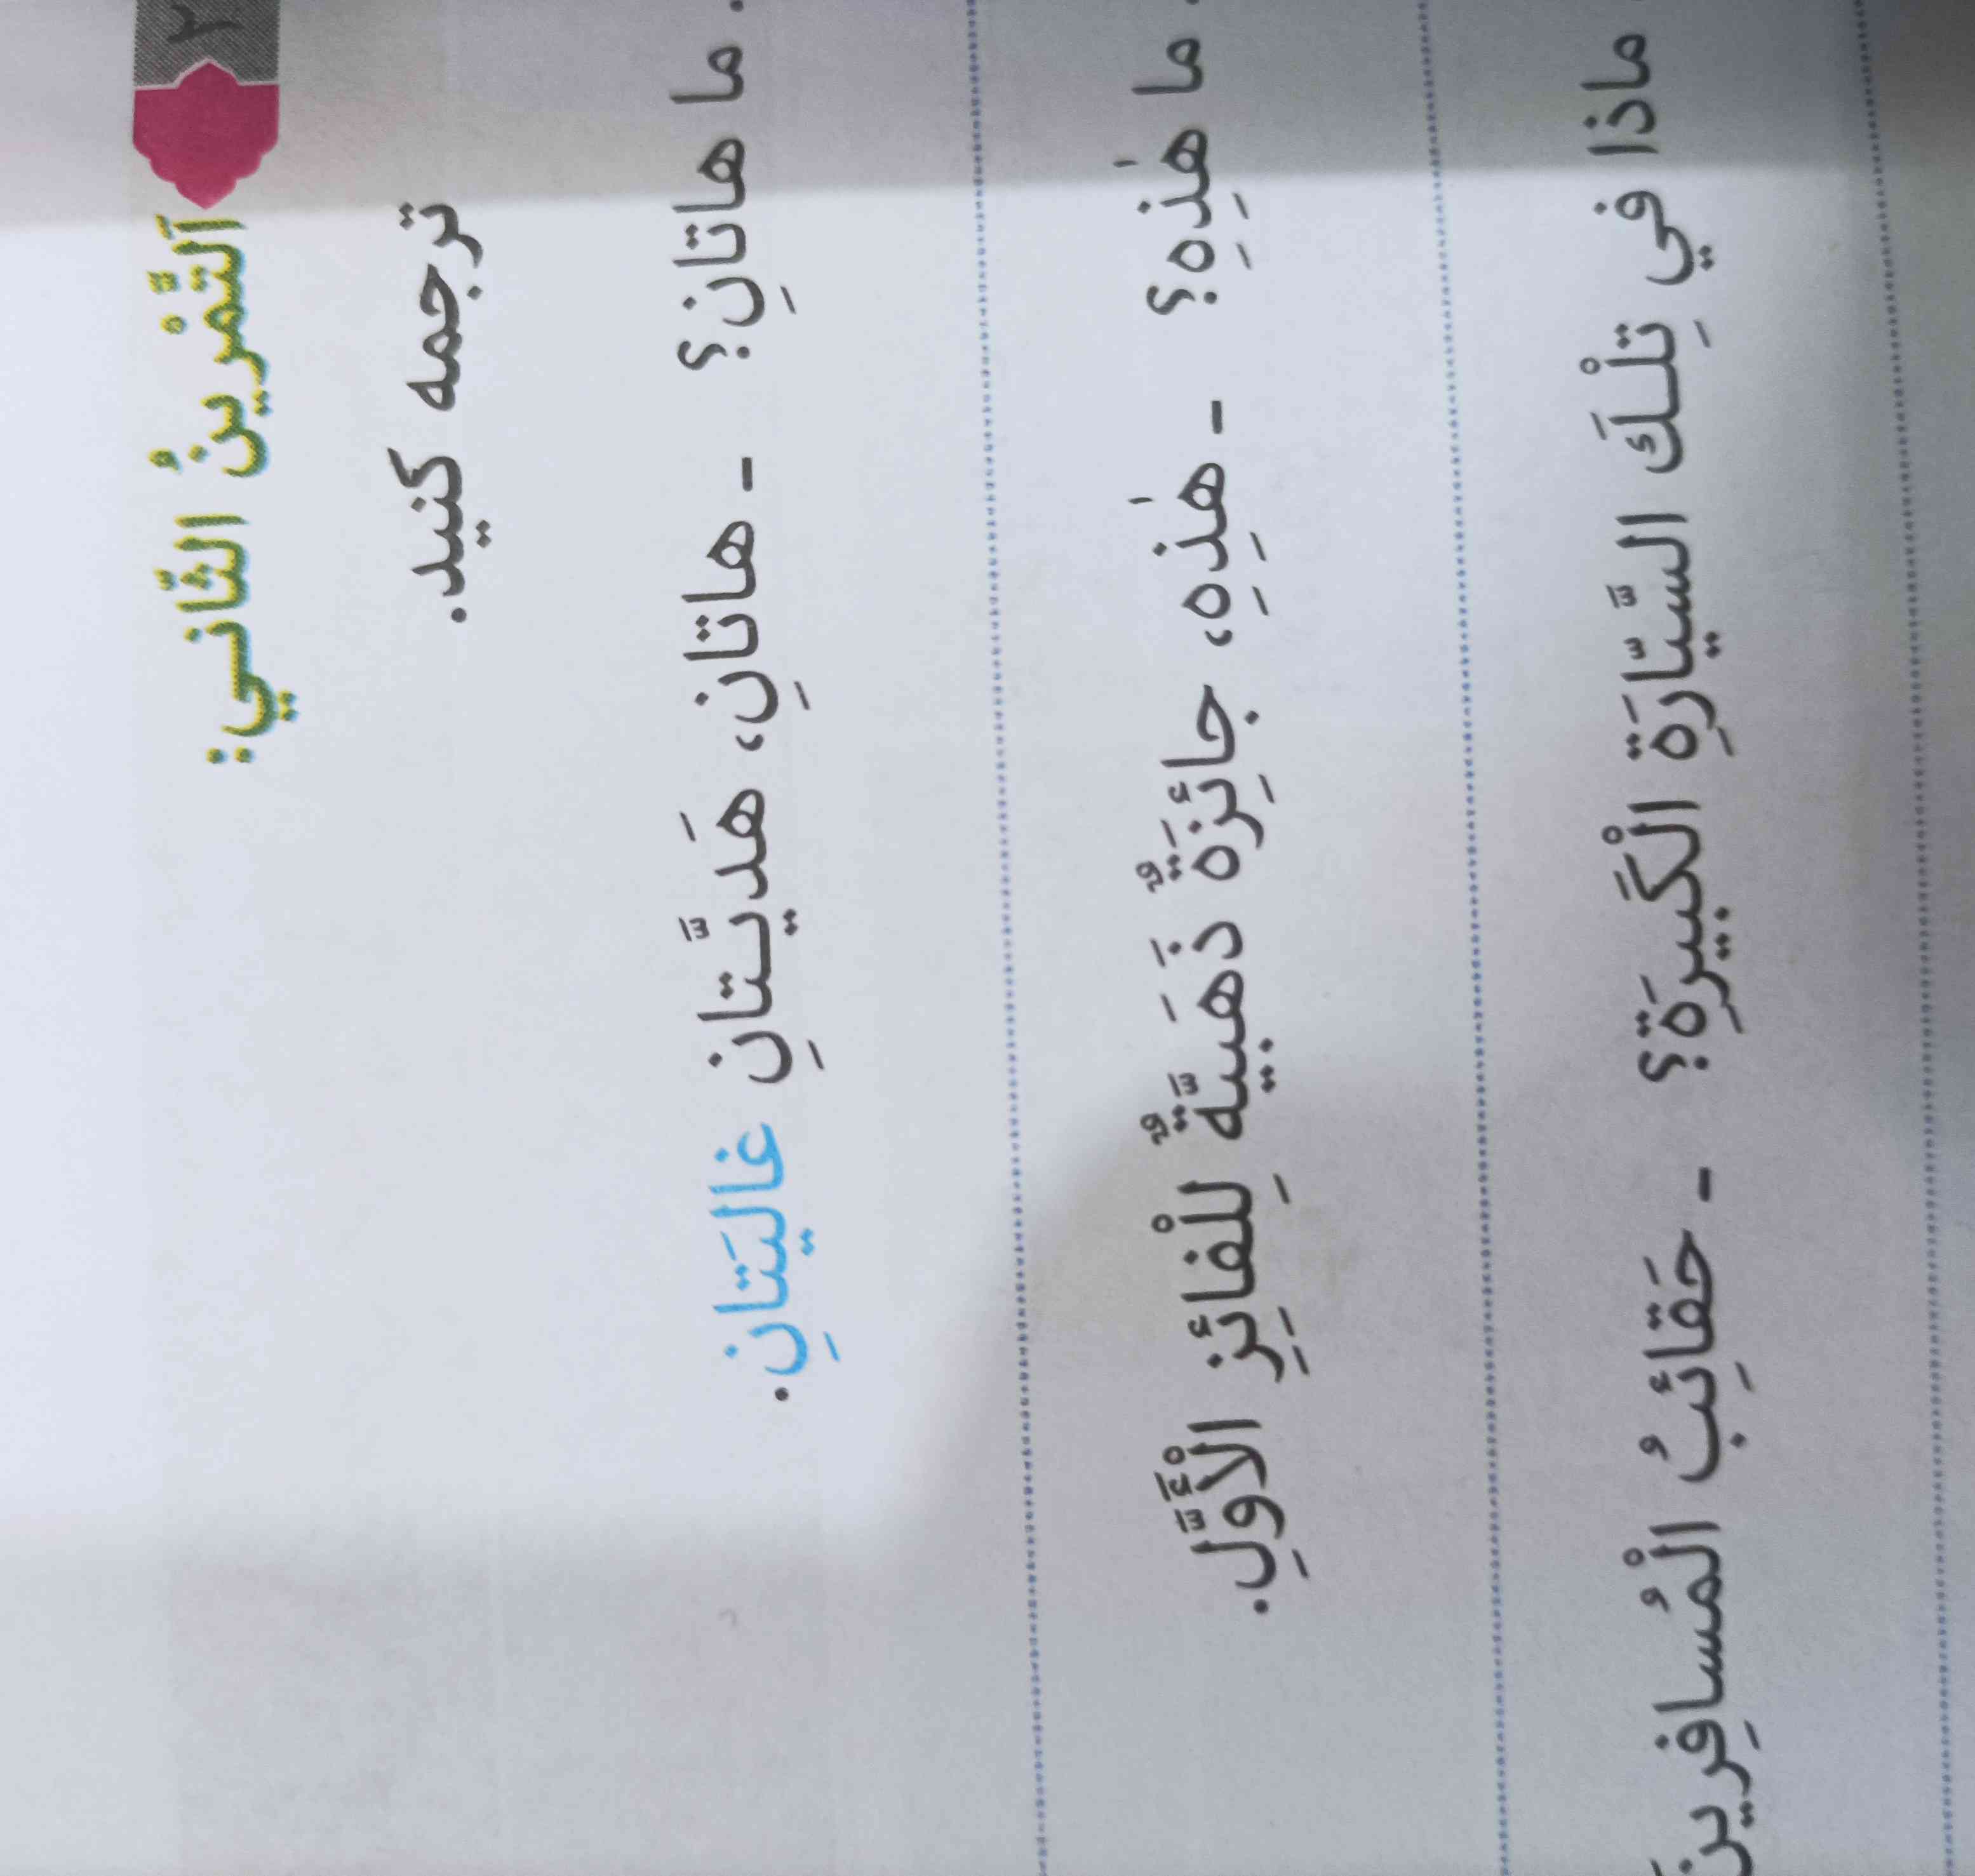 ٢ اَلتَّمْرينُ الثّاني:
ترجمه کنید.
. ما هاتانِ؟ - هاتانِ، هَديَّـتانِ غاليَتانِ.
. ما هٰذِهِ؟ - هٰذِهِ، جائِزَةٌ ذَهَبيَّةٌ لِلْفائِزِ الْأَوَّلِ.
. ماذا في تِلْكَ السَّيّارَةِ الْكَبيرَةِ؟ - حَقائِبُ الْمُسافِرينَ